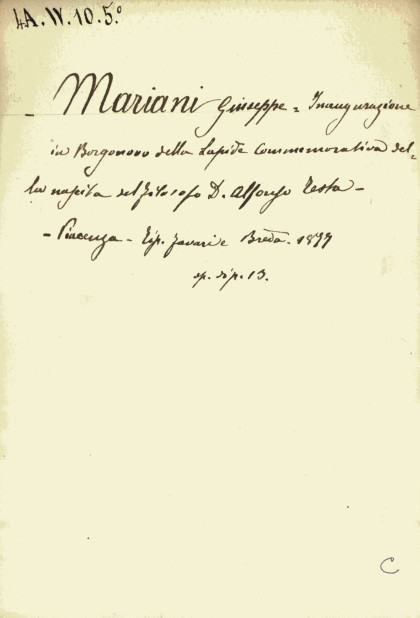 4A.W.10.5.°
- Mariani Giuseppe = Inaugurazione
in Borgonovo della Lapide Commemorativa del-
la nascita del filosofo D. Alfonso Testa -
- Piacenza - Tip. Favari e Breda. 1877
op. di p. 13.
C